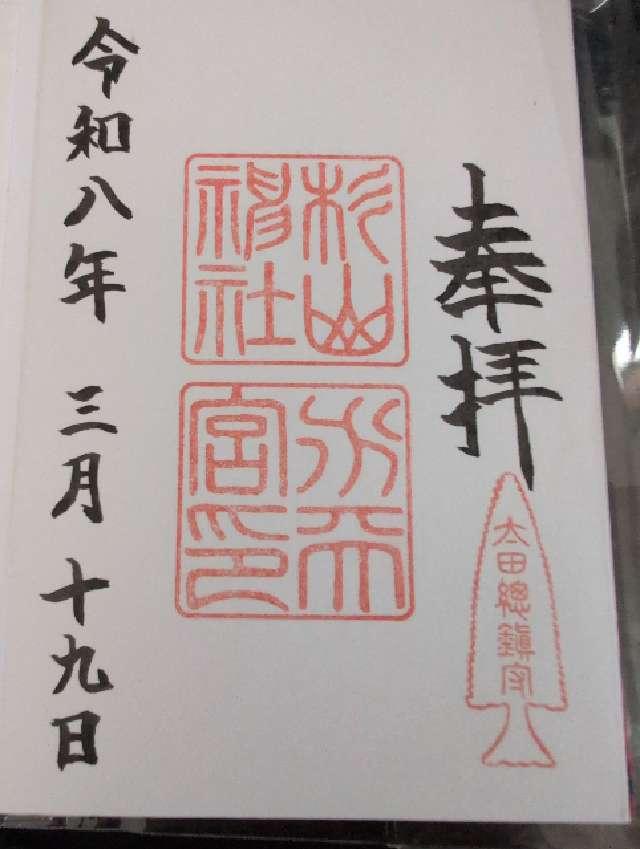 奉拝
太田總鎮守
杉山
神社
水天
宮印
令和八年 三月十九日